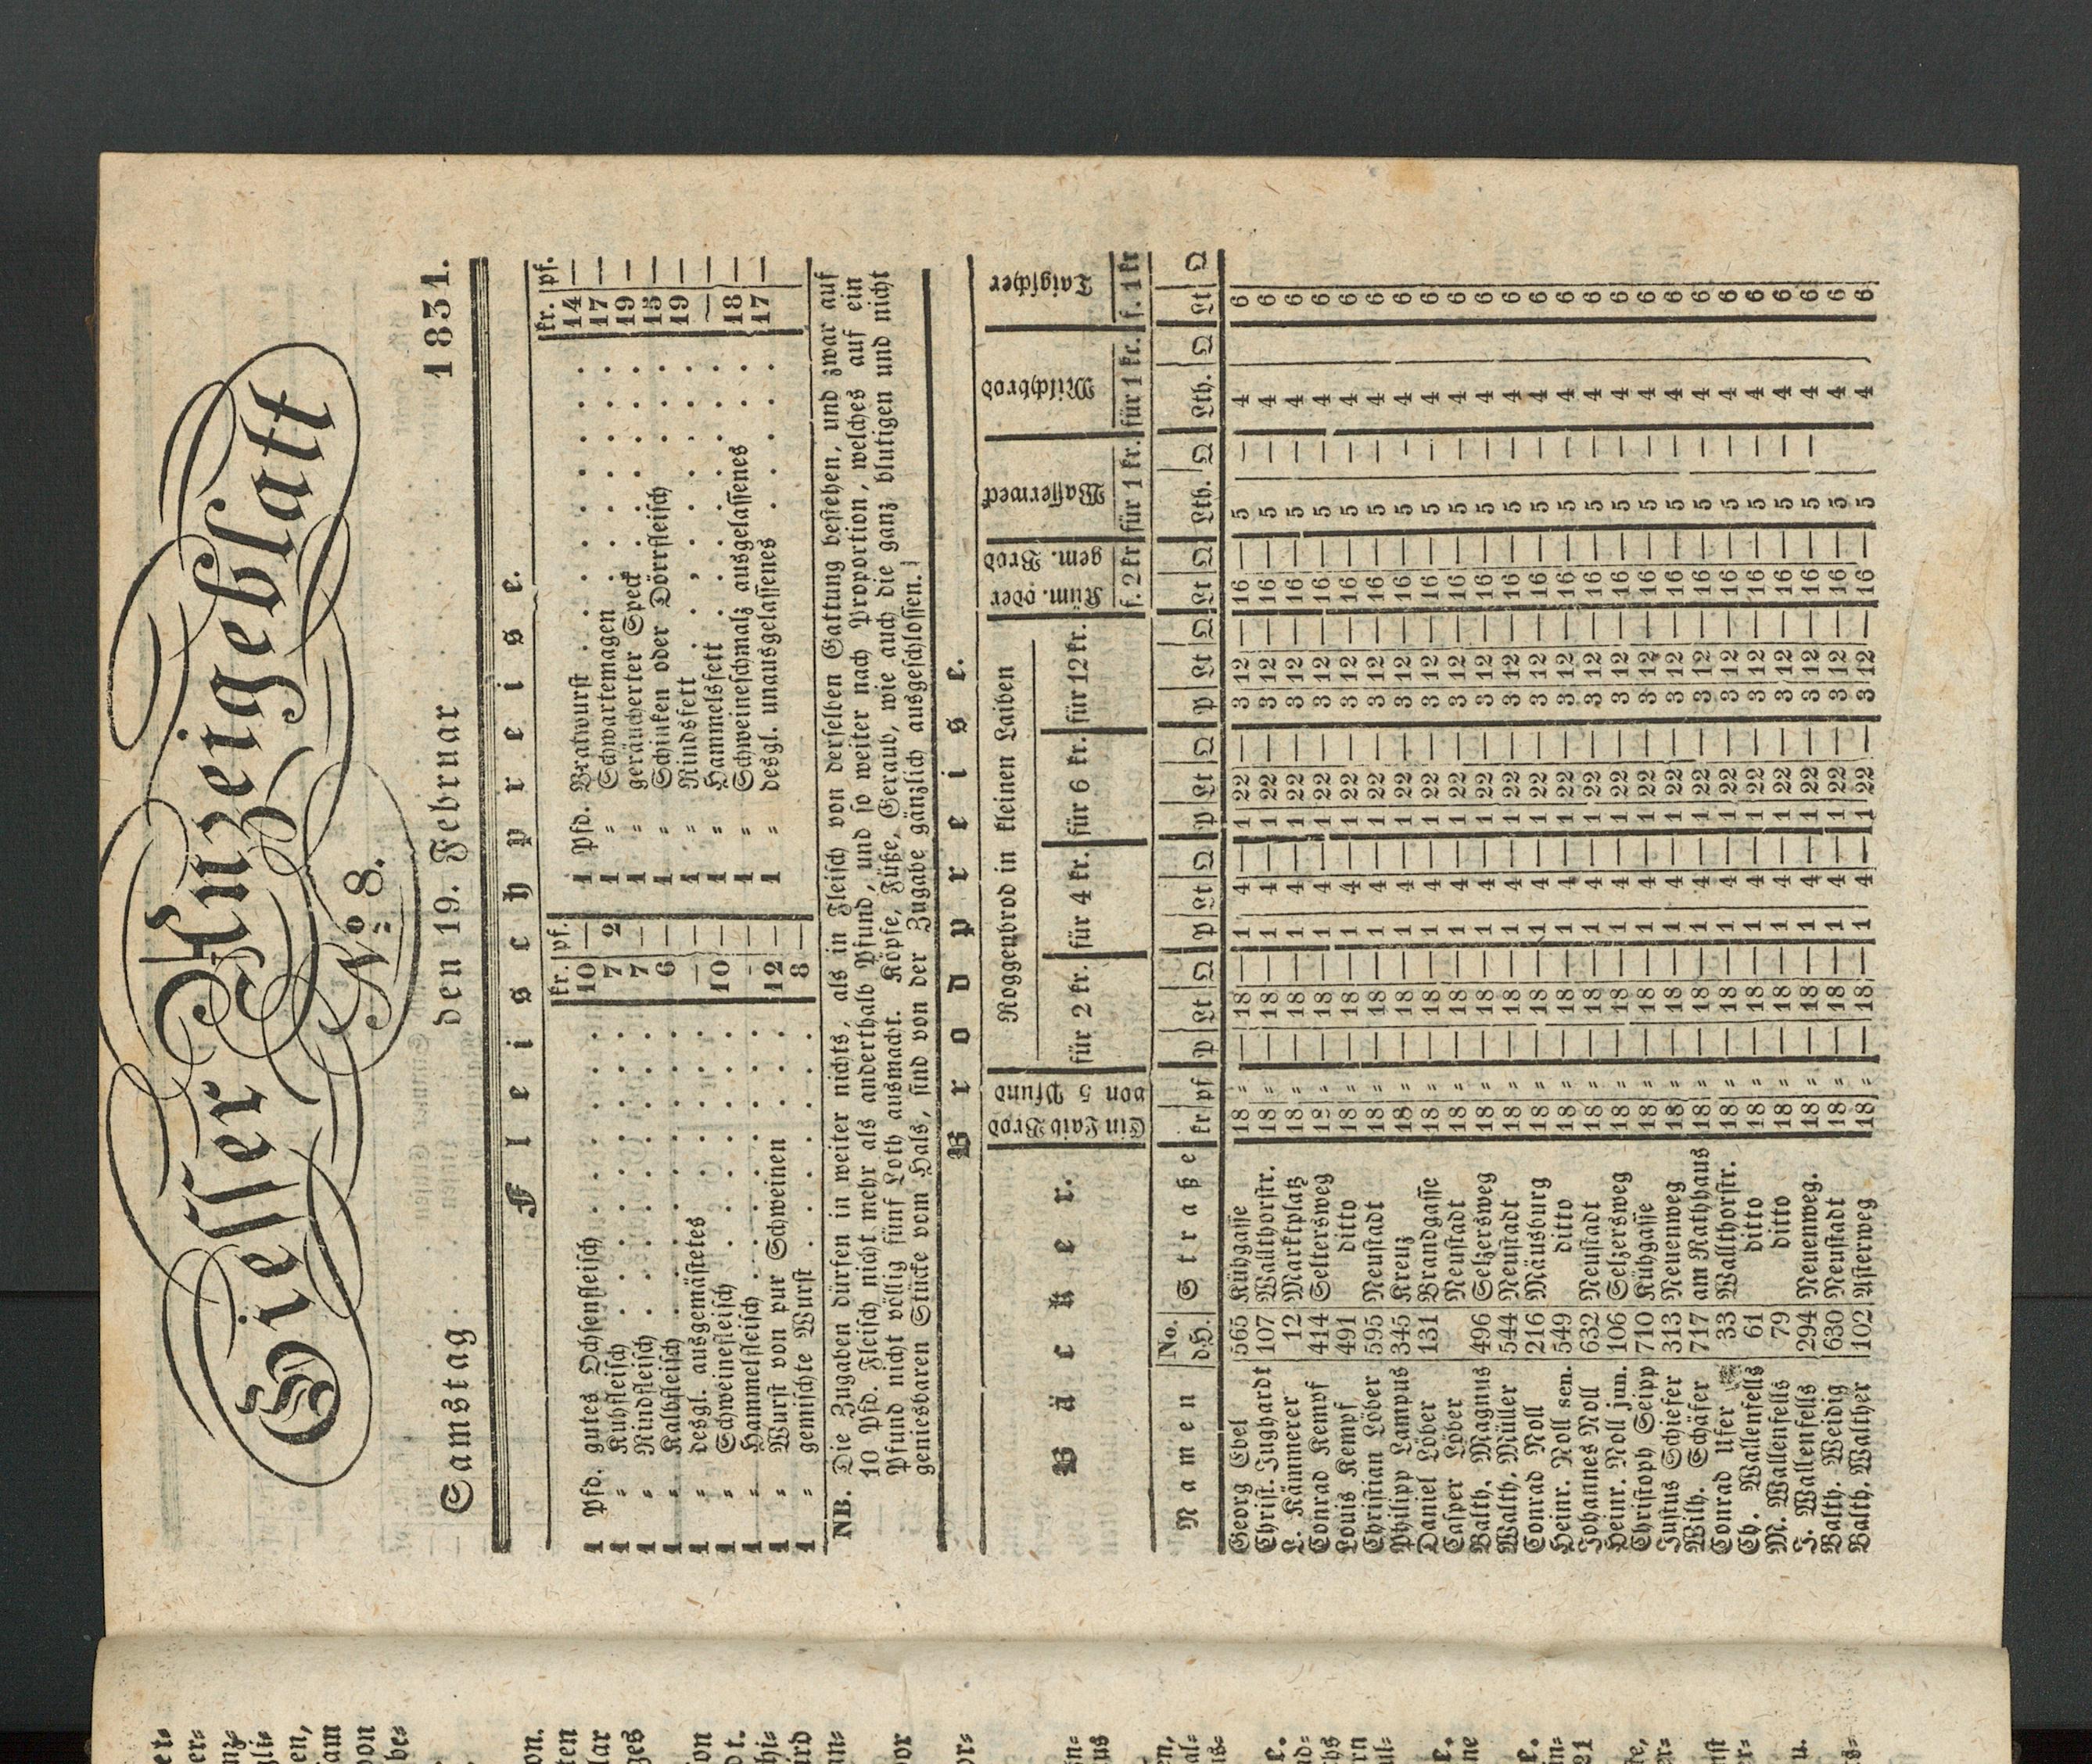 Giesser Anzeigeblatt
No 8.
Samstag den 19. Februar 1831.
Fleischpreise.
kr. pf.
1 Pfd. gutes Ochsenfleisch . . . . . . 10 —
1 " Kuhfleisch . . . . . . 7 2
1 " Rindfleisch . . . . . . 7 —
1 " Kalbfleisch . . . . . . 6 —
1 " desgl. ausgemästetes . . . . . — —
1 " Schweinefleisch . . . . . 10 —
1 " Hammelfleisch . . . . . — —
1 " Wurst von pur Schweinen . . . 12 —
1 " gemischte Wurst . . . . . 8 —
kr. pf.
1 Pfd. Bratwurst . . . . . . 14 —
1 " Schwartemagen . . . . . 17 —
1 " geräucherter Speck . . . . . 19 —
1 " Schinken oder Dörrfleisch . . . . 15 —
1 " Rindsfett . . . . . . 19 —
1 " Hammelsfett . . . . . . — —
1 " Schweineschmalz ausgelassenes . . . 18 —
1 " desgl. unausgelassenes . . . . 17 —
NB. Die Zugaben dürfen in weiter nichts, als in Fleisch von derselben Gattung bestehen, und zwar auf
10 Pfd. Fleisch nicht mehr als anderthalb Pfund, und so weiter nach Proportion, welches auf ein
Pfund nicht völlig fünf Loth ausmacht. Köpfe, Füße, Geraub, wie auch die ganz blutigen und nicht
geniesbaren Stücke vom Hals, sind von der Zugabe gänzlich ausgeschlossen.
Brodpreise.
Bäcker. Ein Laib Brod von 5 Pfund Roggenbrod in kleinen Laiben Küm. oder gem. Brod Wasserweck Milchbrod Taigscher
für 2 kr. für 4 kr. für 6 kr. für 12 kr. f. 2 kr für 1 kr. für 1 kr. f. 1 kr
Namen No. d.H. Straße kr pf P Lt Q P Lt Q P Lt Q P Lt Q Lt Q Lth. Q Lth. Q Lt Q
Georg Ebel 565 Kühgasse 18 " — 18 — 1 4 — 1 22 — 3 12 — 16 — 5 — 4 6
Christ. Jughardt 107 Wallthorstr. 18 " — 18 — 1 4 — 1 22 — 3 12 — 16 — 5 — 4 6
L. Kämmerer 12 Marktplatz 18 " — 18 — 1 4 — 1 22 — 3 12 — 16 — 5 — 4 6
Conrad Kempf 414 Seltersweg 18 " — 18 — 1 4 — 1 22 — 3 12 — 16 — 5 — 4 6
Louis Kempf 491 ditto 18 " — 18 — 1 4 — 1 22 — 3 12 — 16 — 5 — 4 6
Christian Löber 595 Neustadt 18 " — 18 — 1 4 — 1 22 — 3 12 — 16 — 5 — 4 6
Philipp Lampus 345 Kreuz 18 " — 18 — 1 4 — 1 22 — 3 12 — 16 — 5 — 4 6
Daniel Löber 131 Brandgasse 18 " — 18 — 1 4 — 1 22 — 3 12 — 16 — 5 — 4 6
Casper Löber Neustadt 18 " — 18 — 1 4 — 1 22 — 3 12 — 16 — 5 — 4 6
Balth. Magnus 496 Selzersweg 18 " — 18 — 1 4 — 1 22 — 3 12 — 16 — 5 — 4 6
Walth. Müller 544 Neustadt 18 " — 18 — 1 4 — 1 22 — 3 12 — 16 — 5 — 4 6
Conrad Noll 216 Mäusburg 18 " — 18 — 1 4 — 1 22 — 3 12 — 16 — 5 — 4 6
Heinr. Noll sen. 549 ditto 18 " — 18 — 1 4 — 1 22 — 3 12 — 16 — 5 — 4 6
Johannes Noll 632 Neustadt 18 " — 18 — 1 4 — 1 22 — 3 12 — 16 — 5 — 4 6
Heinr. Noll jun. 106 Selzersweg 18 " — 18 — 1 4 — 1 22 — 3 12 — 16 — 5 — 4 6
Christoph Seipp 710 Kühgasse 18 " — 18 — 1 4 — 1 22 — 3 12 — 16 — 5 — 4 6
Justus Schiefer 313 Neuenweg 18 " — 18 — 1 4 — 1 22 — 3 12 — 16 — 5 — 4 6
Wilh. Schäfer 717 am Rathhaus 18 " — 18 — 1 4 — 1 22 — 3 12 — 16 — 5 — 4 6
Conrad Ufer 33 Wallthorstr. 18 " — 18 — 1 4 — 1 22 — 3 12 — 16 — 5 — 4 6
Ch. Wallenfells 61 ditto 18 " — 18 — 1 4 — 1 22 — 3 12 — 16 — 5 — 4 6
M. Wallenfells 79 ditto 18 " — 18 — 1 4 — 1 22 — 3 12 — 16 — 5 — 4 6
J. Wallenfells 294 Neuenweg. 18 " — 18 — 1 4 — 1 22 — 3 12 — 16 — 5 — 4 6
Balth. Weidig 630 Neustadt 18 " — 18 — 1 4 — 1 22 — 3 12 — 16 — 5 4 6
Balth. Walther 102 Asterweg 18 " — 18 — 1 4 — 1 22 — 3 12 — 16 — 5 4 6